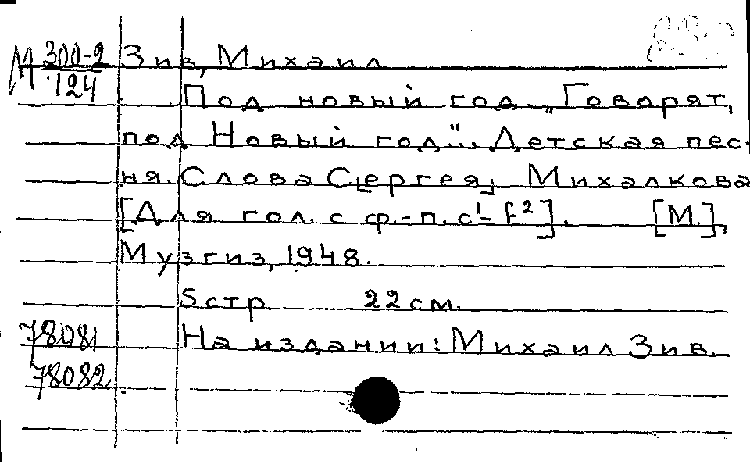 М 300-2/124 Зив, Михаил
Под новый год. „Говорят,
под Новый год“... Детская пес-
ня. Слова С[ергея] Михалкова
[Для гол. с ф.-п. c¹-f²]. [М.],
Музгиз, 1948.
5 стр 22 см.
78081 На издании: Михаил Зив.
78082